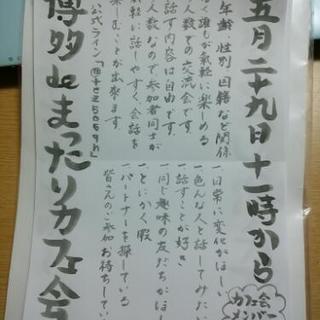 五月二十九日十一時から
年齢、性別、国籍など関係
なく誰もが気軽に楽しめる
少人数での交流会です。
話す内容は自由です。
少人数なので参加者同士が
気軽に話しやすく、会話を
楽しむことが出来ます。
公式ライン
・日常に変化がほしい
・色んな人と話してみたい
・話すことが好き
・同じ趣味の友だちがほしい
・とにかく暇
・パートナーを探している
皆さんのご参加お待ちしてい
カフェ会
メンバー
博多deまったりカフェ会